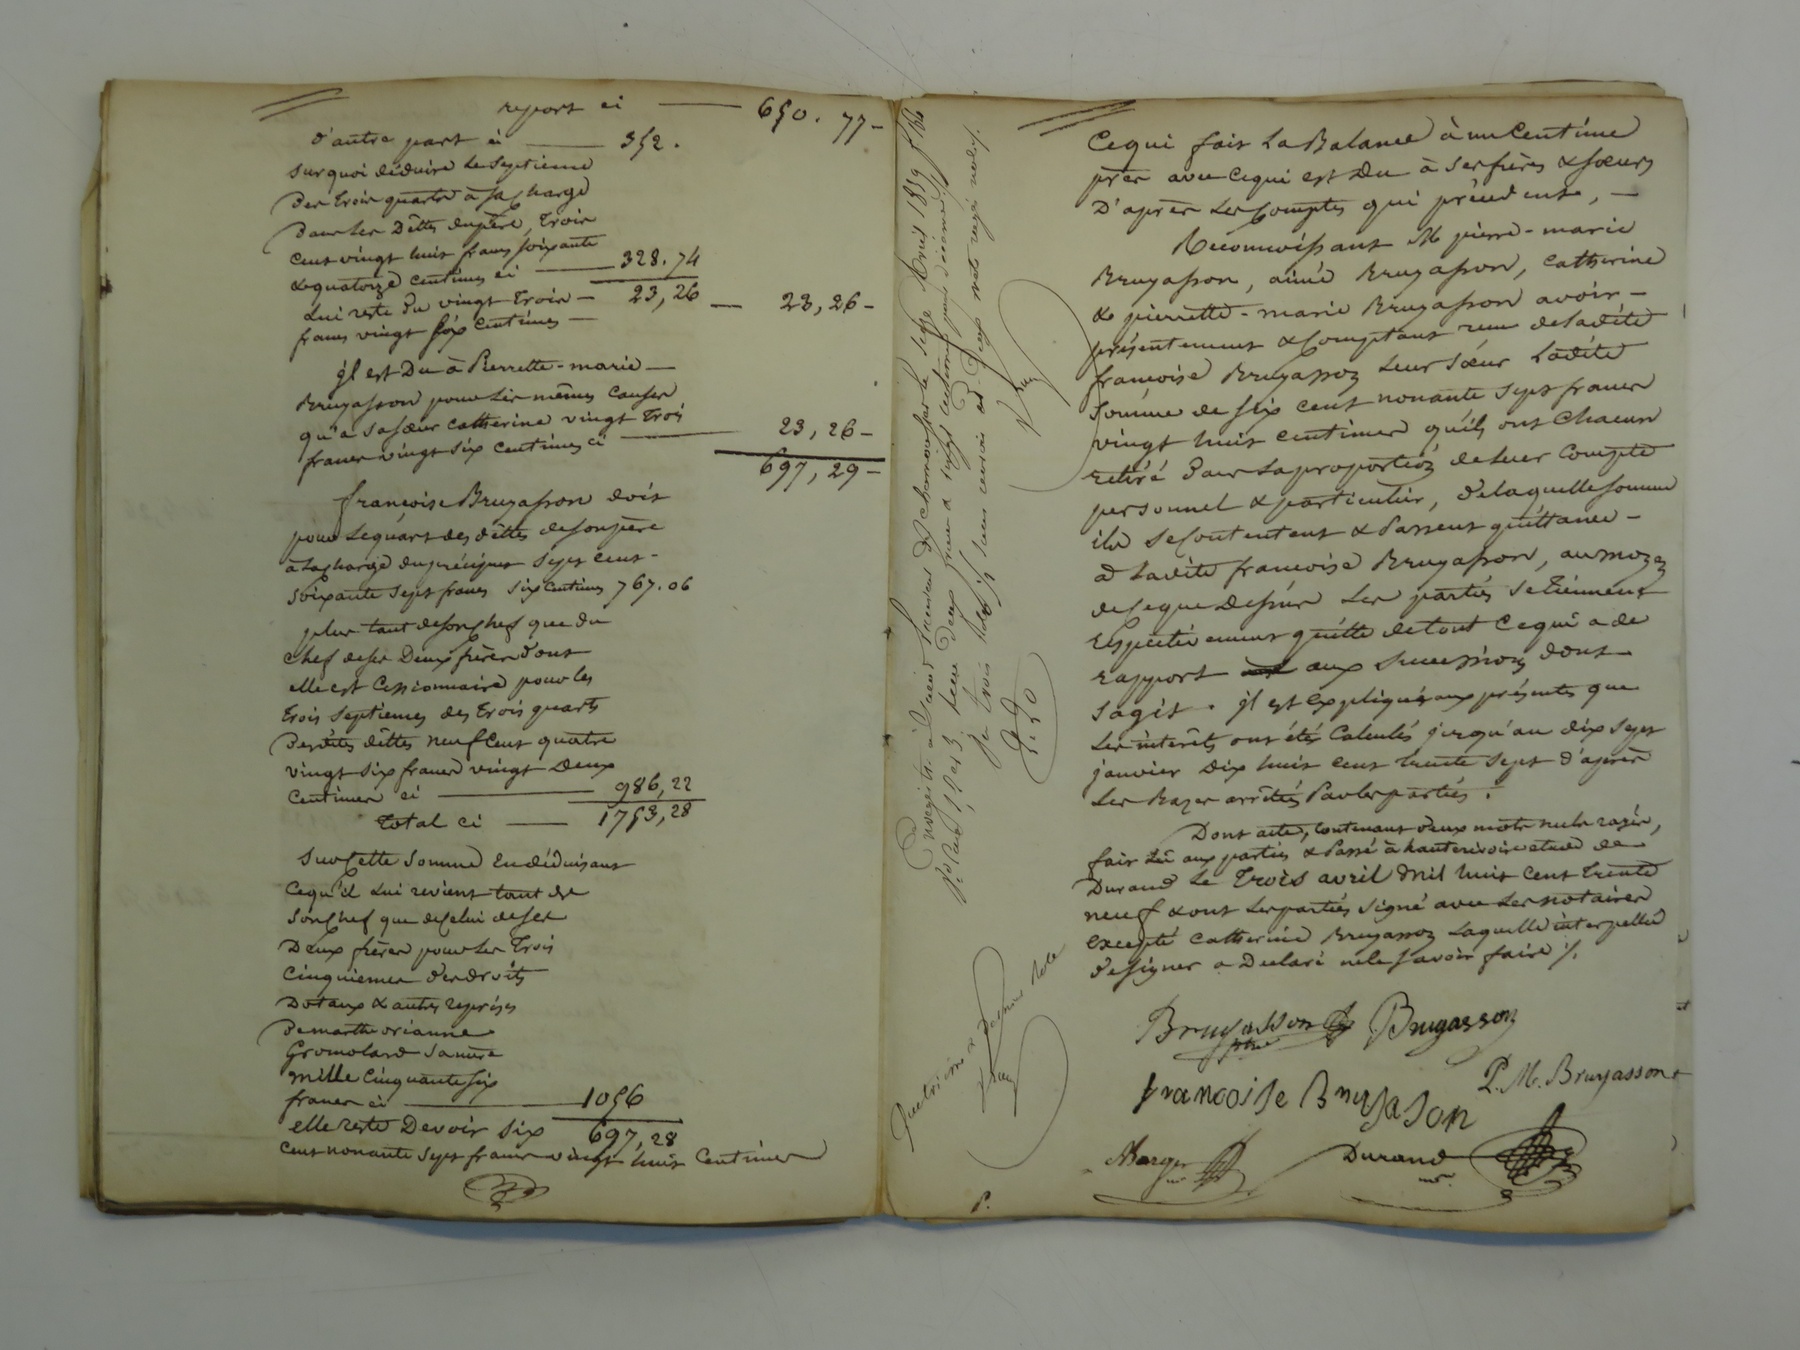 report ci — 650. 77 -
d'autre part ci — 352.
surquoi déduire le septieme
des trois quarts à sa charge
dans les dêttes du père, trois
cent vingt huit francs soixante
& quatorze centimes ci — 328.74
Lui reste du vingt trois — 23,26 — 23,26 -
francs vingt six centimes —
il est Du à Pierrette-marie —
Bruyasson pour les mêmes causes
qu'à sa sœur catherine vingt trois
francs vingt six centimes ci — 23,26 -
697,29 -
françoise Bruyasson doit
pour le quart des dêttes de son père
à la charge du préciput sept cent -
soixante sept francs six centimes 767.06
plus tant de son chef que du
chef de ses Deux frères dont
elle est Cessionnaire pour les
trois septiemes des trois quarts
des dites dêttes neuf cent quatre
vingt six francs vingt Deux
centimes ci — 986,22
total ci — 1753,28
sur Cette somme en déduisant
ce qu'il lui revient tant de
son chef que de celui de ses
Deux frères pour les trois
cinquiemes des droits
Dotaux & autres reprises
de marthe orianne
Gromolard sa mère
mille cinquante six
francs ci — 1056
elle reste Devoir six 697,28
cent nonante sept francs vingt huit Centimes
Ce qui fait La Balance à un Centime
près avec ce qui est Du à ses frères & sœurs
D'après les Comptes qui précedent, —
Reconnoissant M pierre-marie
Bruyasson, aimé Bruyasson, catherine
& pierrette-marie Bruyasson avoir —
présentement & Comptant reçu de ladite
françoise Bruyasson leur sœur Ladite
somme de six cent nonante sept francs
vingt huit centimes qu'ils ont chacun
retiré dans la proportion de leur Compte
personnel & particulier, de laquelle somme
ils se contentent & Passent quittance —
à Ladite françoise Bruyasson, au moyen
de ce que dessus les parties se tiennent
respectivement quitte de tout ce qui a de
rapport aux succession dont
sagit. il est expliqué aux présentes que
Les intérêts ont étés Calculés jusqu'au dix sept
janvier dix huit cent trente sept d'après
Les Bazes arrêtées Par les parties.
Dont acte, contenant deux mots nuls rayés,
fait Lu aux parties & Passé à hauterivoire étude de
Durand Le trois avril mil huit cent trente
neuf & ont les parties signé avec les notaires
excepté catherine Bruyasson laquelle interpellée
de signer a Déclaré ne le savoir faire /.
Bruyasson Bruyasson
P. M. Bruyasson
francoise Bruyason
Durand
nre.
Enregistré à Saint Laurent de chamousset le seize Avril 1839